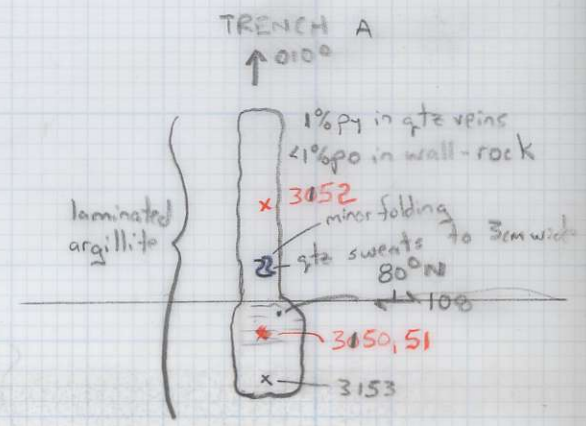 TRENCH A
010°
1% py in qtz veins
<1% po in wall-rock
3152
laminated
argillite
minor folding
qtz sweats to 3cm wide
80°N
108
3150, 51
3153